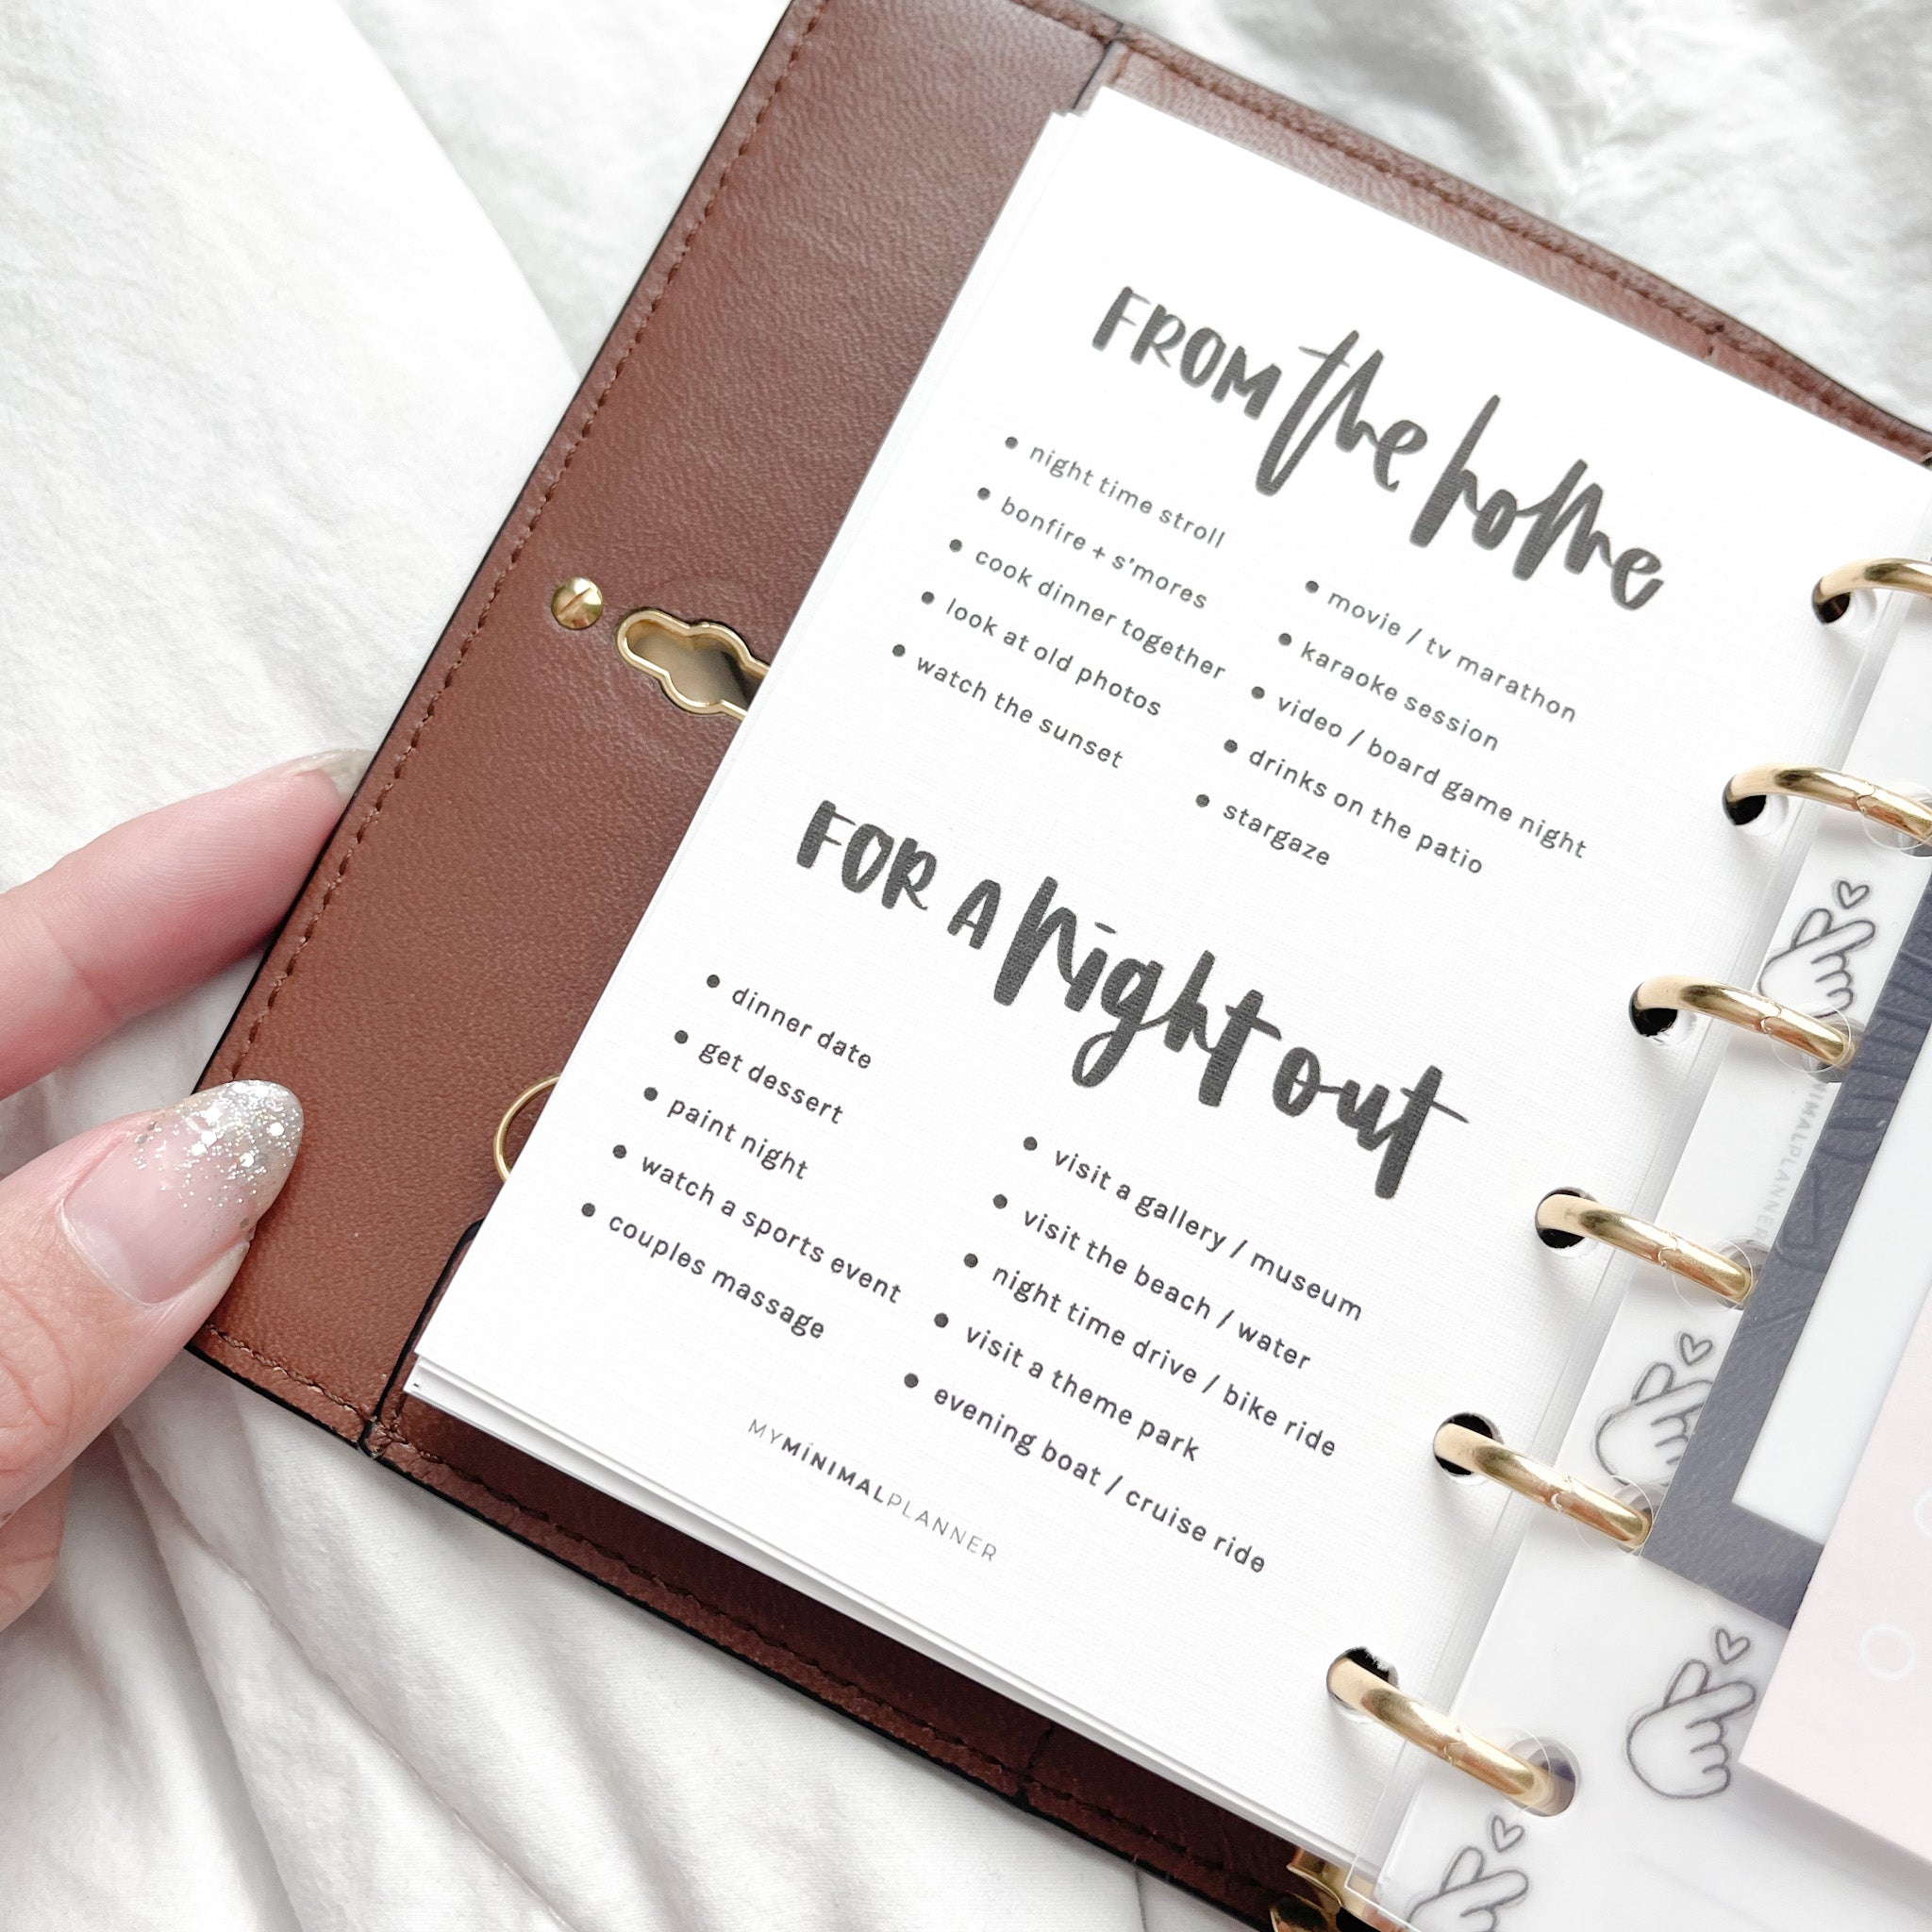 FROM the home
• night time stroll
• bonfire + s'mores
• cook dinner together
• look at old photos
• watch the sunset
• movie / tv marathon
• karaoke session
• video / board game night
• drinks on the patio
• stargaze
FOR A night out
• dinner date
• get dessert
• paint night
• watch a sports event
• couples massage
• visit a gallery / museum
• visit the beach / water
• night time drive / bike ride
• visit a theme park
• evening boat / cruise ride
MYMINIMALPLANNER
NIMALPLANNER